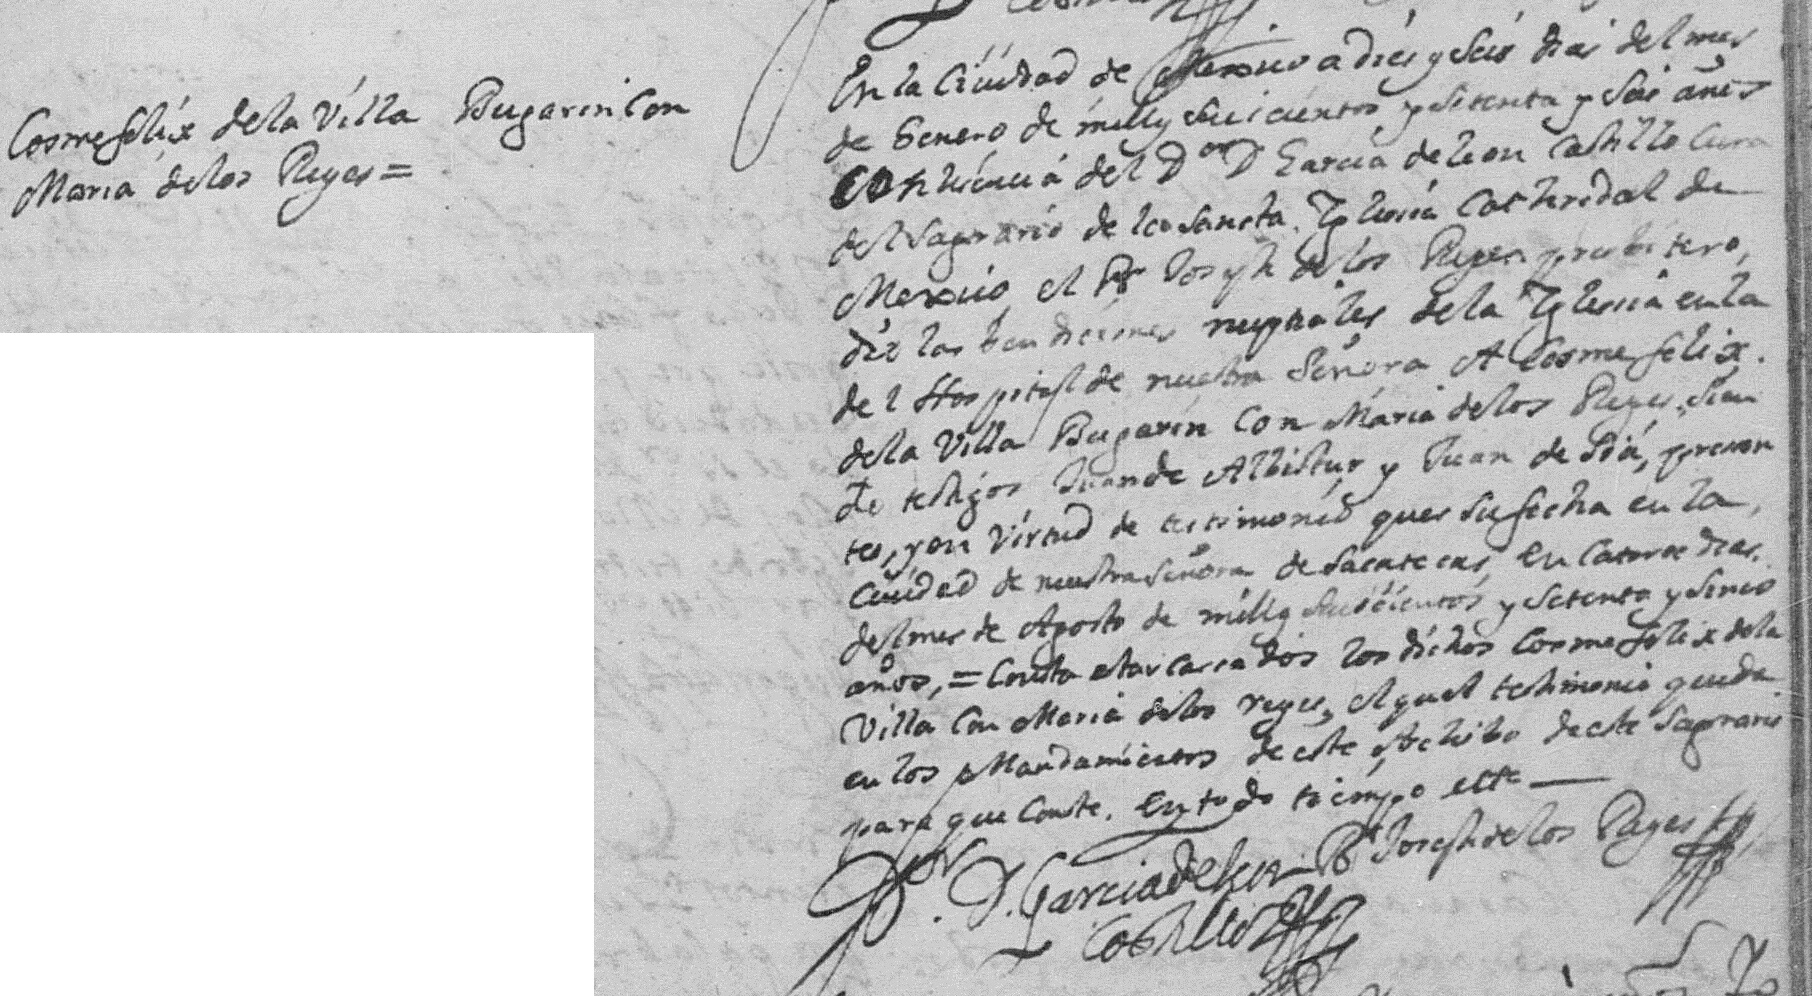 Cosme felix de la Villa Bugarin Con
Maria de los Reyes =
En la Ciudad de Mexico a dies y seis dias del mes
de Genero de mill y seicientos y setenta y seis años
Con liciencia del Dor Dn Garcia de leon Castillo Cura
del Sagrario de la sancta Iglesia Cathredal de
Mexico, el Br Joseph de los Reyes presbitero,
dio las bendiciones nupciales de la Iglesia en la
del Hospital de nuestra Señora A Cosme felix
de la Villa Bugarin Con Maria de los Reyes, sien
do testigos Juan de Albistur y Juan de presen
tes, y en virtud de testimonio ques su fecha en la
Ciudad de nuestra señora de sacatecas, En Catorce dias
del mes de Agosto de mill y seiscientos y setenta y sinco
años, = Consta estar casados los dichos Cosme felix de la
Villa Con Maria de los reyes, el qual testimonio queda
en los Mandamientos de este Archibo deste Sagrario
para que Conste. En todo tiempo ett.
Dor. D. Garcia de leon Br Joseph de los Reyes
Castillo